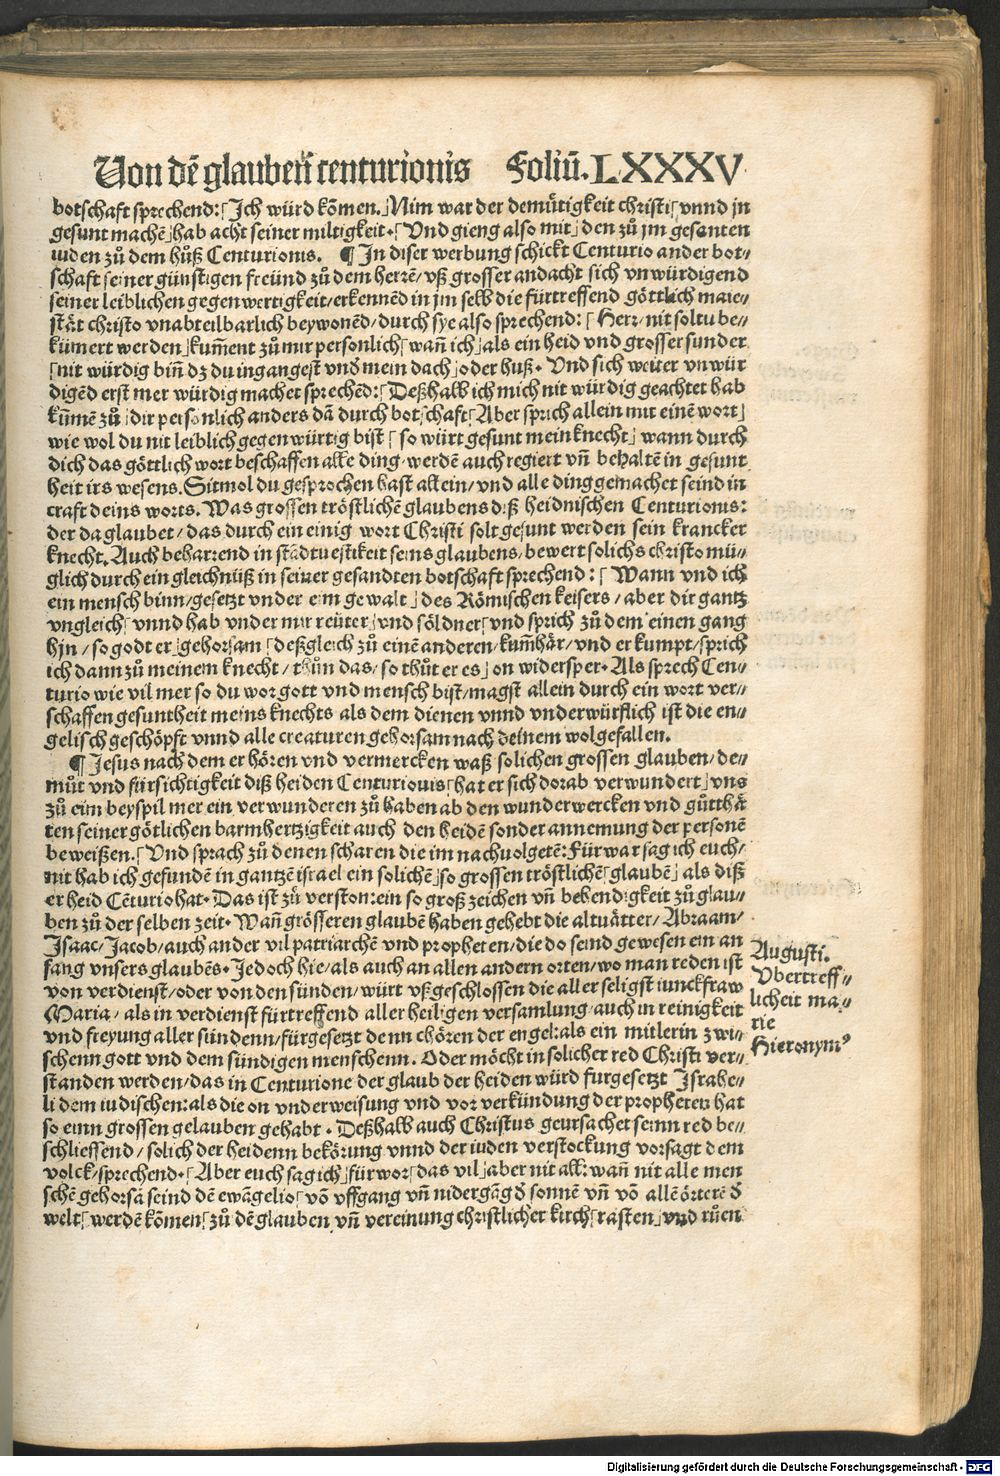 Von dē glaubeñ centurionis Foliū. LXXXV
botschafft sprechend:⌈Ich würd kōmen.⌋Nim war der demütigkeit christi⌈vnnd jn
gesunt machē⌋hab acht seiner miltigkeit.⌈Vnd gieng also mit⌋den zů jm gesanten
iuden zů dem hůß Centurionis. ¶ In diser werbung schickt Centurio ander bot⸗
schaft seiner günstigen freünd zů dem herrē/vß grosser andacht sich vnwürdigend
seiner leiblichen gegenwertigkeit/erkennēd in jm selb die fürtreffend göttlich maie⸗
stät christo vnabteilbarlich beywonēd/durch sye also sprechend:⌈Herr/nit soltu be⸗
kümert werden⌋kum̄ent zů mir personlich⌈wañ ich⌋als ein heid vnd grosser sunder
⌈nit würdig biñ dz du ingangest vnđ mein dach⌋oder huß. Vnd sich weiter vnwür
digēd erst mer würdig machet sprechēd:⌈Deßhalb ich mich nit würdig geachtet hab
kum̄ē zů⌋dir persönlich anders dā durch botschaft⌈Aber sprich allein mit einē wort⌋
wie wol du nit leiblich gegenwürtig bist⌈so würt gesunt mein knecht⌋wann durch
dich das göttlich wort beschaffen alle ding/werdē auch regiert vñ behaltē in gesunt
heit irs wesens. Sitmol du gesprochen hast allein/vnd alle ding gemachet seind in
craft deins worts. Was grossen tröstlichē glaubens diß heidnischen Centurionis:
der da glaubet/das durch ein einig wort Christi solt gesunt werden sein krancker
knecht. Auch beharrend in städtuestikeit seins glaubens/bewert solichs christo mü⸗
glich durch ein gleichnüß in seiner gesandten botschaft sprechend:⌈Wann vnd ich
ein mensch binn/gesetzt vnder eim gewalt⌋des Römischen keisers/aber dir gantz
vngleich⌈vnnd hab vnder mir reüter⌋vnd söldner⌈vnd sprich zů dem einen gang
hjn/so godt er⌋gehorsam⌈deßgleich zů einē anderen/kum̄här/vnd er kumpt/sprich
ich dann zů meinem knecht/thůn das/so thůt er es⌋on widersper. Als sprech Cen⸗
turio wie vil mer so du wor gott vnd mensch bist/magst allein durch ein wort ver⸗
schaffen gesuntheit meins knechts als dem dienen vnnd vnderwürflich ist die en⸗
gelisch geschöpft vnnd alle creaturen gehorsam nach deinem wolgefallen.
¶ Jesus nach dem er hören vnd vermercken waß solichen grossen glauben/de⸗
můt vnd fürsichtigkeit diß heiden Centurionis⌈hat er sich dorab verwundert⌋vns
zů eim beyspil mer ein verwunderen zů haben ab den wunderwercken vnd gůtthä
ten seiner götlichen barmhertzigkeit auch den heidē sonder annemung der personē
beweißen.⌈Vnd sprach zů denen scharen die im nachuolgetē: Fürwar sag ich euch/
nit hab ich gefundē in gantzē israel ein solichē⌋so grossen tröstlichē⌈glaubē⌋als diß
er heid Cēturio hat. Das ist zů verston: ein so groß zeichen vñ behendigkeit zů glau⸗
ben zů der selben zeit. Wañ grösseren glaubē haben gehebt die altuätter/Abraam/
Isaac/Jacob/auch ander vil patriarchē vnd propheten/die do seind gewesen ein an
fang vnsers glaubēs. Jedoch hie/als auch an allen andern orten/wo man reden ist
von verdienst/oder von den sünden/würt vßgeschlossen die aller seligst iunckfraw
Maria/als in verdienst fürtreffend aller heiligen versamlung/auch in reinigkeit
vnd freyung aller sündenn/fürgesetzt denn chören der engel: als ein mitlerin zwi⸗
schenn gott vnd dem sündigen menschenn. Oder möcht in solicher red Christi ver⸗
standen werden/das in Centurione der glaub der heiden würd furgesetzt Israhe⸗
li dem iudischen: als die on vnderweisung vnd vor verkündung der propheten hat
so einn grossen gelauben gehabt. Deßhalb auch Christus geursachet seinn red be⸗
schliessend/solich der heidenn bekörung vnnd der iuden verstockung vorsagt dem
volck/sprechend.⌈Aber euch sag ich⌋für wor⌈das vil⌋aber nit all: wañ nit alle men
schē gehorsā seind dē ewāgelio⌈vō vffgang vñ nidergāg đ sonnē vñ vō allē örterē đ
welt⌈werdē kōmen⌈zů dē glauben vñ vereinung christlicher kirch⌈rasten⌋vnd růen
Augusti.
Vbertreff⸗
licheit ma⸗
rie
Hieronymꝰ
Digitalisierung gefördert durch die Deutsche Forschungsgemeinschaft - DFG